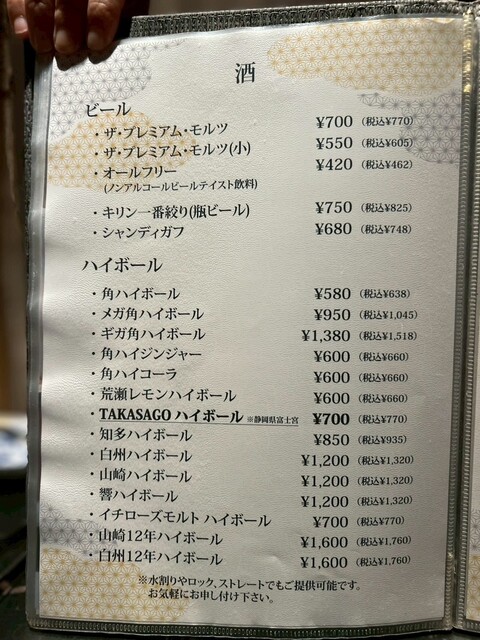 酒
ビール
・ザ・プレミアム・モルツ ¥700 (税込¥770)
・ザ・プレミアム・モルツ(小) ¥550 (税込¥605)
・オールフリー ¥420 (税込¥462)
(ノンアルコールビールテイスト飲料)
・キリン一番絞り(瓶ビール) ¥750 (税込¥825)
・シャンディガフ ¥680 (税込¥748)
ハイボール
・角ハイボール ¥580 (税込¥638)
・メガ角ハイボール ¥950 (税込¥1,045)
・ギガ角ハイボール ¥1,380 (税込¥1,518)
・角ハイジンジャー ¥600 (税込¥660)
・角ハイコーラ ¥600 (税込¥660)
・荒瀬レモンハイボール ¥600 (税込¥660)
・TAKASAGO ハイボール ※静岡県富士宮 ¥700 (税込¥770)
・知多ハイボール ¥850 (税込¥935)
・白州ハイボール ¥1,200 (税込¥1,320)
・山崎ハイボール ¥1,200 (税込¥1,320)
・響ハイボール ¥1,200 (税込¥1,320)
・イチローズモルト ハイボール ¥700 (税込¥770)
・山崎12年ハイボール ¥1,600 (税込¥1,760)
・白州12年ハイボール ¥1,600 (税込¥1,760)
※水割りやロック、ストレートでもご提供可能です。
お気軽にお申し付け下さい。